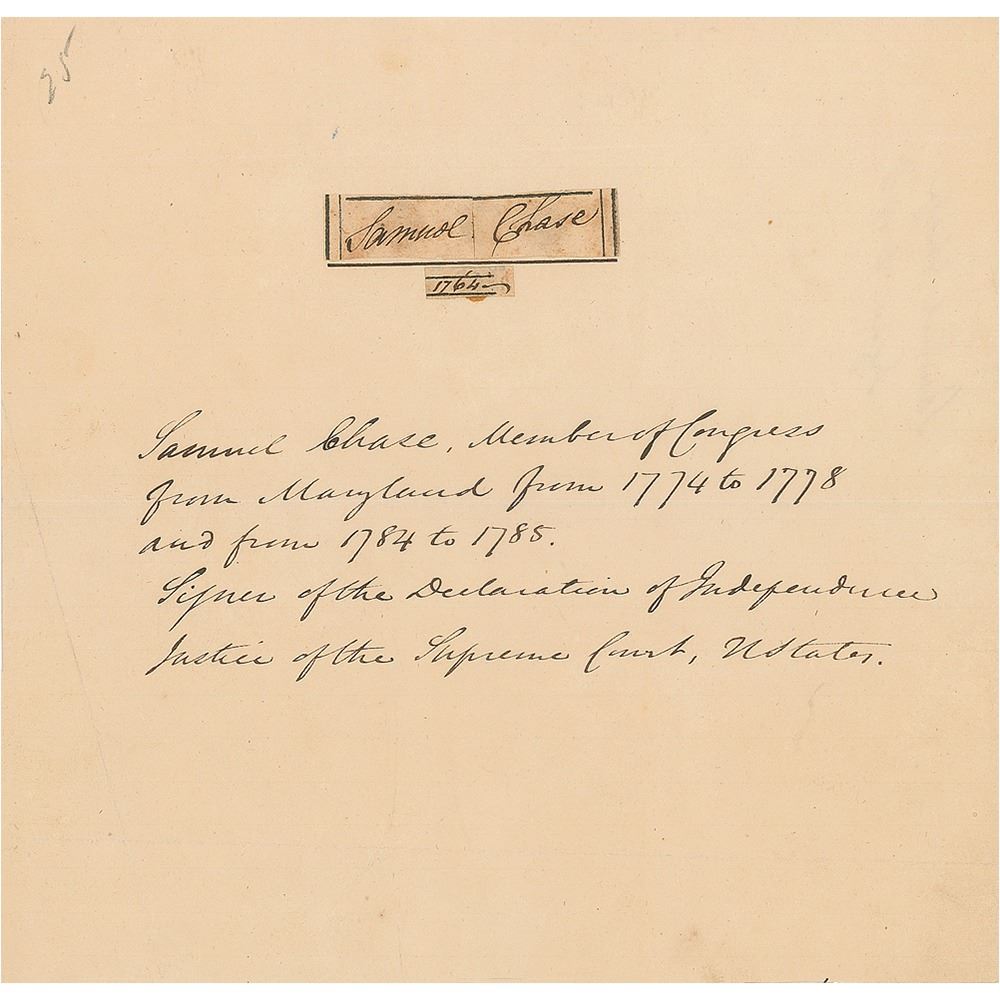 25
Samuel Chase
1764
Samuel Chase, Member of Congress
from Maryland from 1774 to 1778
and from 1784 to 1785.
Signer of the Declaration of Independence
Justice of the Supreme Court, UStates.